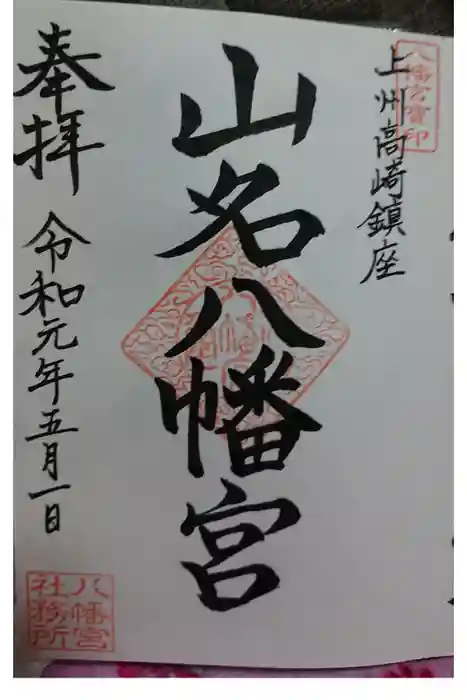 八幡宮寶印
上州高崎鎮座
山名八幡宮
奉拝
令和元年五月一日
八幡宮
社務所